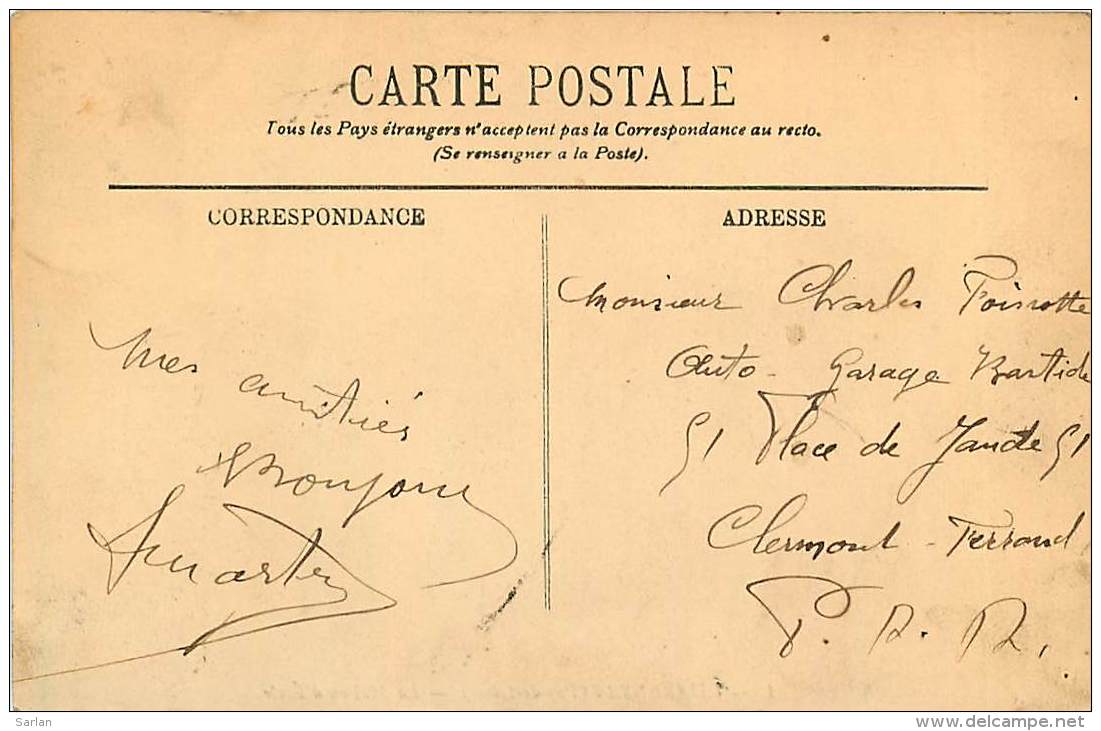 CARTE POSTALE
Tous les Pays étrangers n'acceptent pas la Correspondance au recto.
(Se renseigner a la Poste).
CORRESPONDANCE
ADRESSE
Mes amitiés
Bonjour
Monsieur Charles
Auto-Garage Bastide
51 Place de Jaude 51
Clermont-Ferrand,
P. D. D.
Sarlan
www.delcampe.net